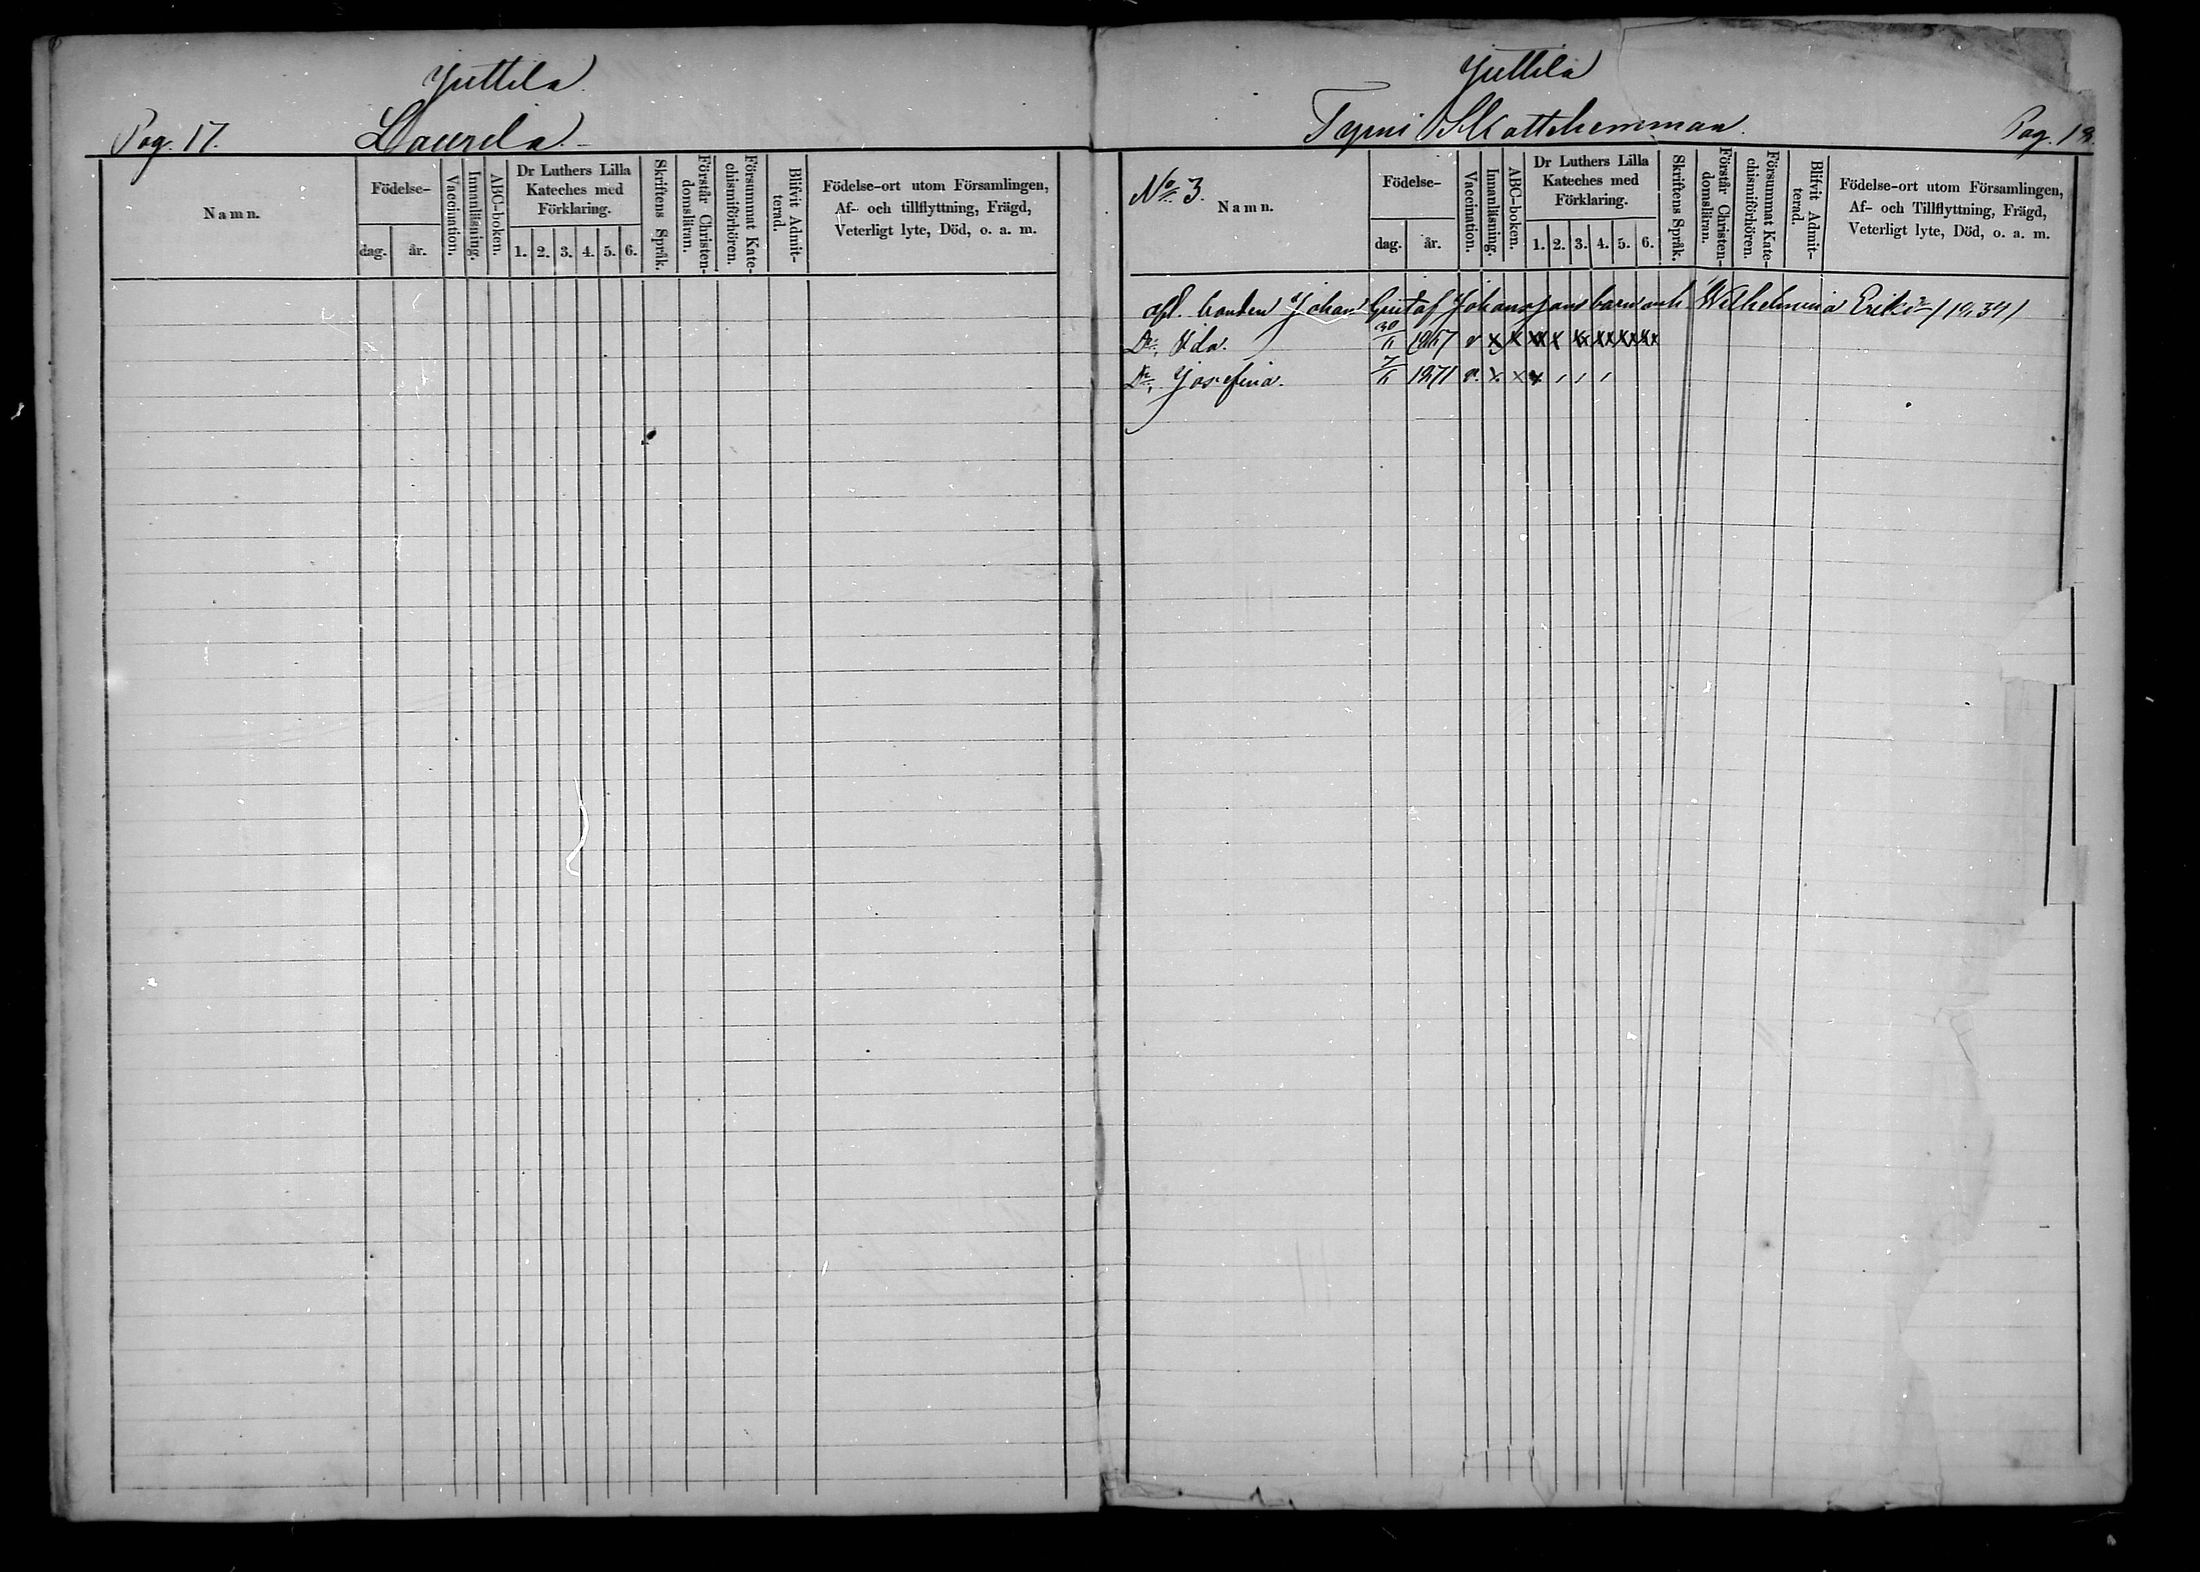 Juttila
Pag. 17. Laurila
Namn.
Födelse-
dag. år.
Vaccination.
Innanläsning.
ABC-boken.
Dr Luthers Lilla
Kateches med
Förklaring.
1. 2. 3. 4. 5. 6.
Skriftens Språk.
Förstår Christen-
domsläran.
Försummat Kate-
chismiförhören.
Blifvit Admit-
terad.
Födelse-ort utom Församlingen,
Af- och tillflyttning, Frägd,
Veterligt lyte, Död, o. a. m.
Juttila
Typni Skattehemman. Pag. 18.
No 3.
Namn.
Födelse-
dag. år.
Vaccination.
Innanläsning.
ABC-boken.
Dr Luthers Lilla
Kateches med
Förklaring.
1. 2. 3. 4. 5. 6.
Skriftens Språk.
Förstår Christen-
domsläran.
Försummat Kate-
chismiförhören.
Blifvit Admit-
terad.
Födelse-ort utom Församlingen,
Af- och Tillflyttning, Frägd,
Veterligt lyte, Död, o. a. m.
afl. bonden Johan Gustaf Johanssons barn och Wilhelmina
Dr, Ida. 1867 v x x xx x xx xx xx xx
Dr, Josefina. 1871 v. x x x , , ,